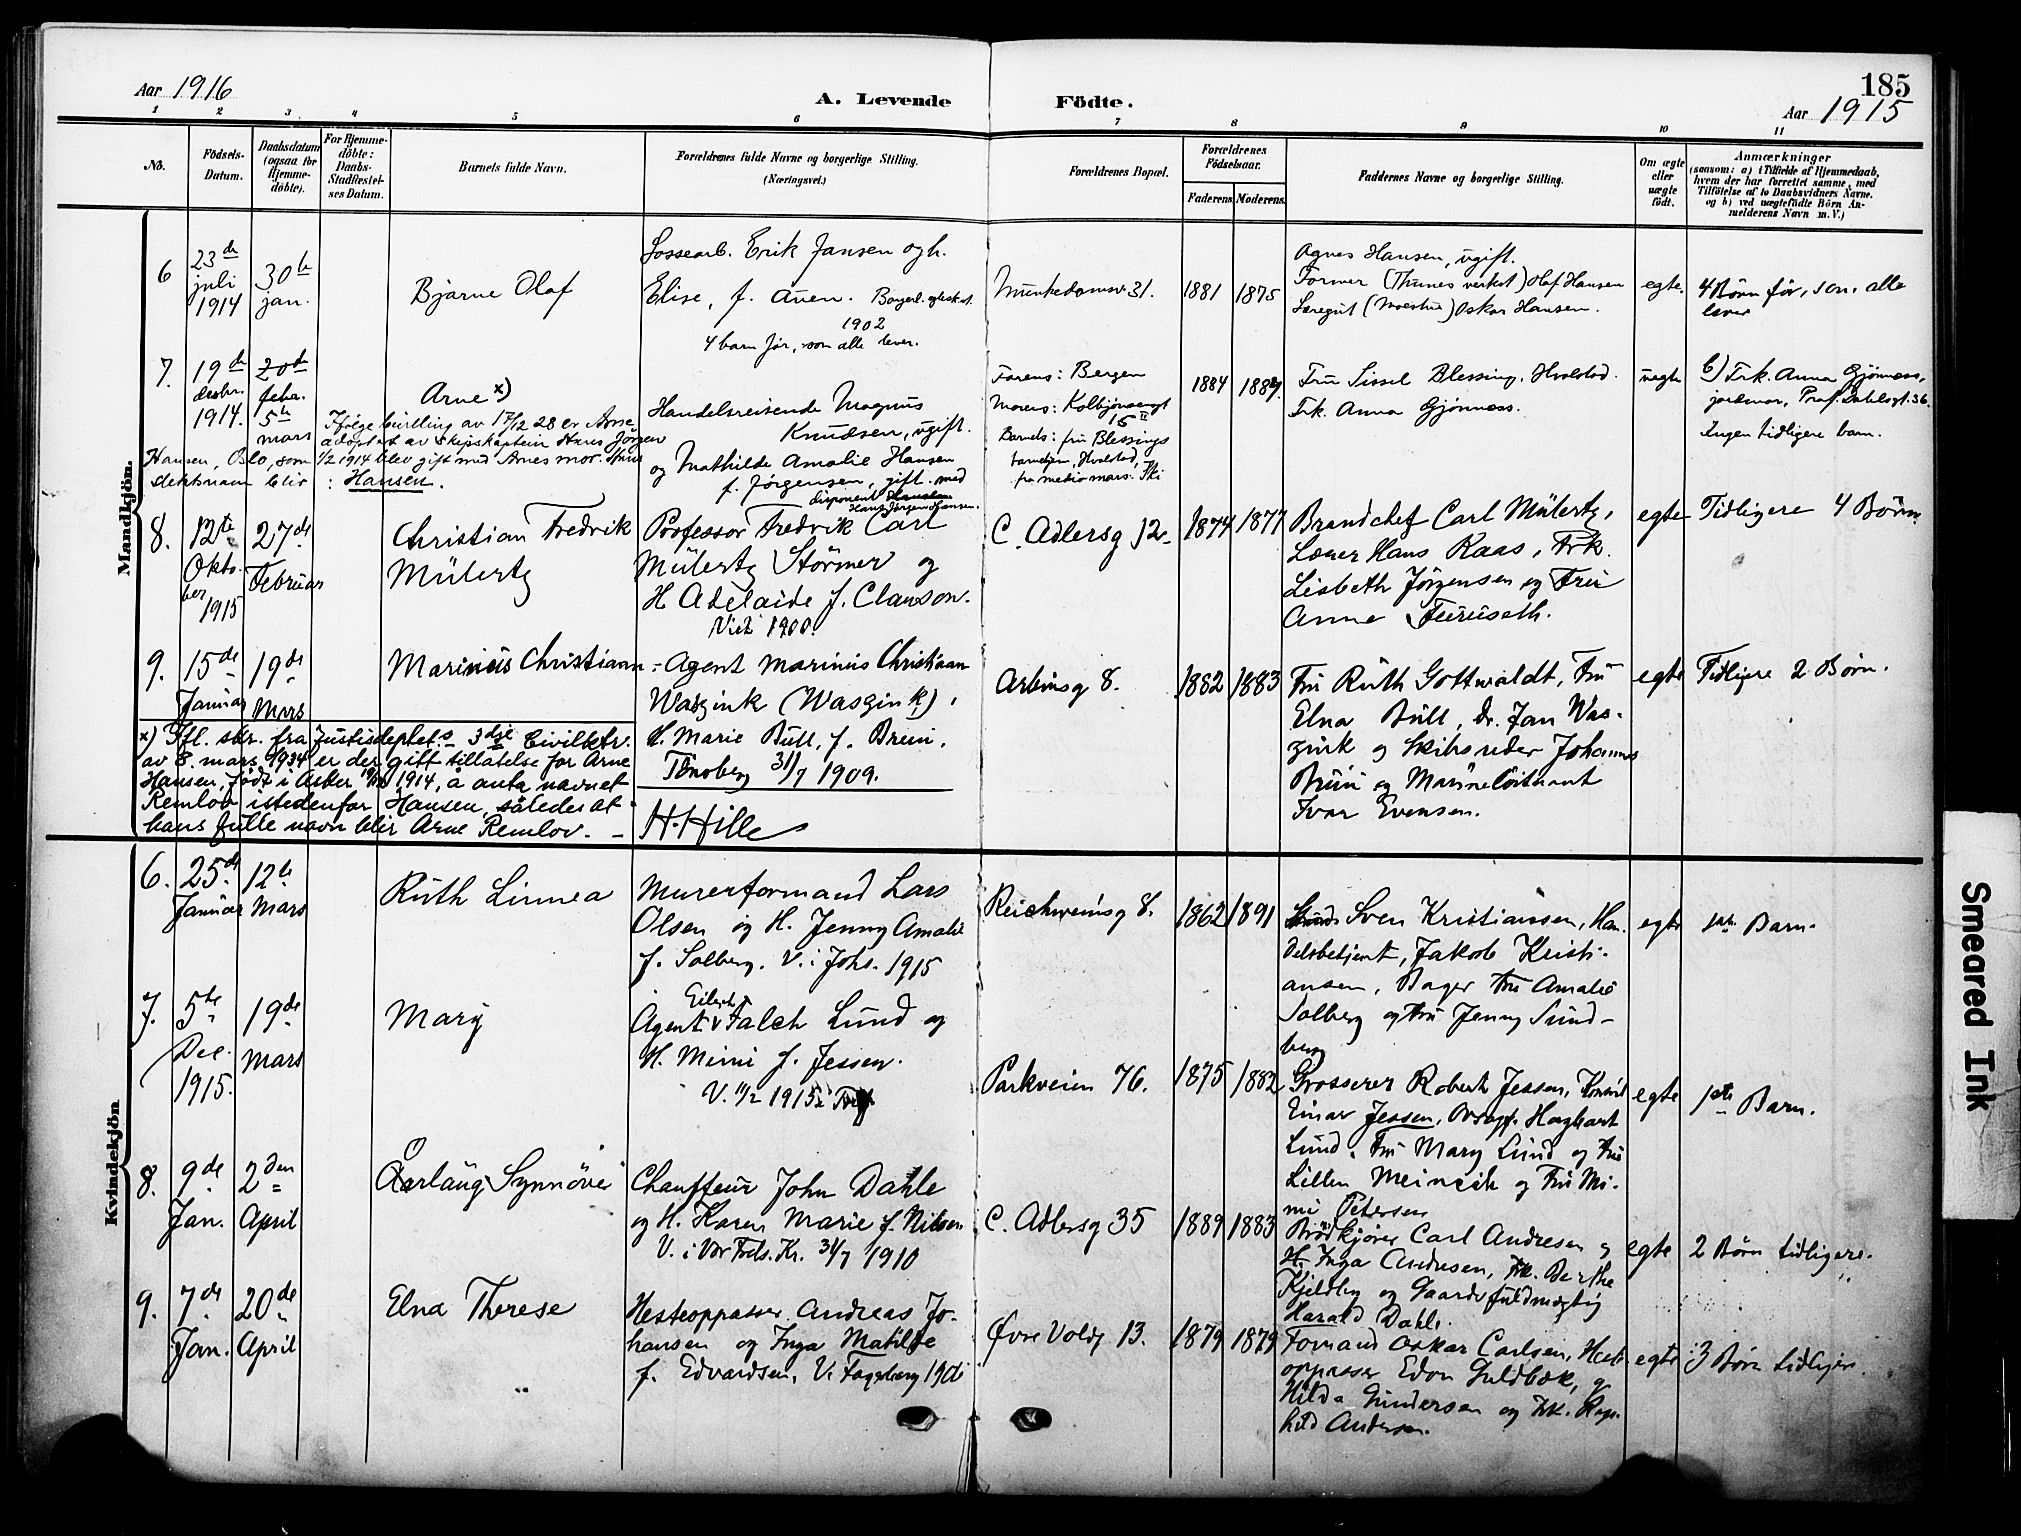 Aar 1916
A. Levende
Födte.
185
Aar 1915
1 2 3 4 5 6 7 8 9 10 11
No.
Födsels-
Datum.
Daabsdatum
(ogsaa for
Hjemme-
döbte).
For Hjemme-
döbte:
Daabs-
Stadfæstel-
ses Datum.
Barnets fulde Navn.
Forældrenes fulde Navne og borgerlige Stilling.
(Næringsvei.)
Forældrenes Bopæl.
Forældrenes
Födselsaar.
Faderens
Moderens
Faddernes Navne og borgerlige Stilling.
Om ægte
eller
uægte
födt.
Anmærkninger
(saasom: a) i Tilfælde af Hjemmedaab,
hvem der har forrettet samme, med
Tilföielse af to Daabsvidners Navne,
og b) ved uægtefödte Börn An-
melderens Navn m. V.)
Mandkjön.
6
23de
juli
1914
30te
jan.
Bjarne Olaf
Lossearb. Erik Jansen og h.
Elise, f. Auen. Borgerl. egteskab.
1902
4 barn før, som alle lever.
Munkedamsv. 31.
1881
1875
Agnes Hansen, ugift.
Former (Thunes verkst) Olaf Hansen
Læregut (Moestue) Oskar Hansen.
egte.
4 Børn før, som alle
lever
7.
19de
desbr.
1914.
20de
febr.
5te
mars
Arne x)
Ifølge bevilling av 17/12 28 er Arne
adoptert av skipskaptein Hans Jörgen
Hansen, Oslo, som 1/2 1914 blev gift med Arnes mor.
blir : Hansen.
Handelsreisende Magnus
Knudsen, ugift.
og Mathilde Amalie Hansen
f. Jørgensen, gift. med
disponent
Hans Jørgen Hansen.
Farens: Bergen
Morens: Kolbjørnsensgt
15 II
Barnets: fru Blessings
barnehjem, Hvalstad,
fra medio mars: Ski
1884
1889
Fru Sissel Blessing, Hvalstad.
Frk. Anna Gjønnæss.
uegte
b) Frk. Anna Gjønnæss,
jordmor, Prof. Dahlsgt. 36.
Ingen tidligere barn.
8.
12te
Okto-
ber
1915
27de
Februar
Christian Fredrik
Mülertz
Professor Fredrik Carl
Mülertz Störmer og
H Adelaide f. Clauson.
Viet 1900.
C. Adlersg 12
1874
1877
Brandchef Carl Mülertz,
Hans Raas, Frk.
Lisbeth Jörgensen og Fru
Anna Furuseth.
egte
Tidligere 4 Börn
9.
15de
Januar
19de
Mars
Marinus Christiaan
Agent Marinus Christiaan
Waszink (Waszink),
H. Marie Bull, f. Bruu.
Tönsberg 31/7 1909.
Arbinsg 8.
1882
1883
Fru Ruth Gottwaldt, Fru
Elna Bull, Dr. Jan Was-
zink og Skibsreder Johannes
Bruu og Marineløitnant
Ivar Evensen.
egte
Tidligere 2 Børn.
x) Ifl. skr. fra Justisdeptets 3dje Civilktr.
av 8. mars 1934 er der gitt tillatelse for Arne
Hansen, født i Asker 19/12 1914, å anta navnet
Remlov istedenfor Hansen, således at
hans fulle navn blir Arne Remlov. –
H. Hille
Kvindekjön
6.
25de
Januar
12te
Mars
Ruth Linnea
Murerformand Lars
Olsen og H. Jenny Amalie
f. Solberg. V. i Johs. 1915
Reichweinsg 8.
1862
1891
Sven Kristianssen, Han-
delsbetjent, Jakob Kristi-
ansen, Bager Fru Amalie
Solberg og Fru Jenny Sund-
berg
egte
1ste Barn.
7.
5te
Dec.
1915.
19de
Mars
Mary
Agent Falch Lund og
H. Mimi f. Jessen.
V. 11/2 1915
Parkveien 76.
1875
1882
Grosserer Robert Jessen,
Einar Jessen, Hagbart
Lund, Fru Mary Lund og Fru
Lillen Meincih og Fru Mi-
mi Petersen
egte
1ste Barn.
8.
9de
Jan.
2den
April
Aarlaug Synnöve
Chauffeur John Dahle
og H. Karen Marie f. Nilsen
V. i Vor Frels. Kr. 31/7 1910
C. Adlersg 35
1889
1883
Brødkjører Carl Andresen og
H. Inga Andresen, Frk. Berthe
Kjeldby og Gaardsfuldmægtig
Harald Dahle.
egte
2 Børn tidligere.
9.
7de
Jan.
20de
April
Elna Therese
Hesteoppasser Andreas Jo-
hansen og Inga Matilde
f. Edvardsen, V. Fagerborg 190
Øvre Voldg 13.
1879
1879
Formand Oskar Carlsen, Heste-
oppasser Edon Guldbæk,
Hilda Gundersen og Frk. Ragn-
hild Andersen.
egte
3 Børn tidligere.
Smeared Ink